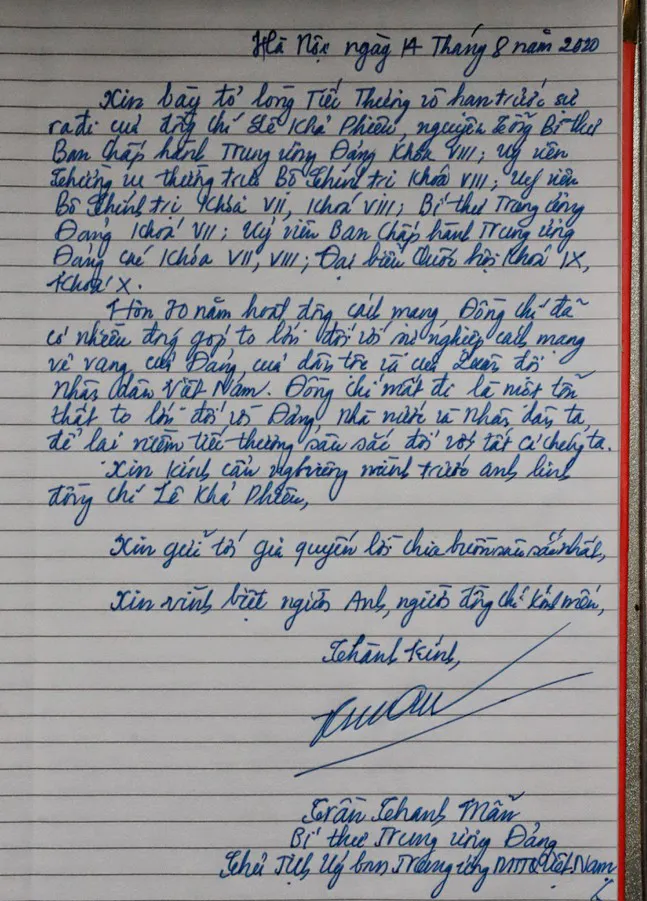 Hà Nội ngày 14 Tháng 8 năm 2020
Xin bày tỏ lòng Tiếc Thương vô hạn trước sự
ra đi của đồng chí Lê Khả Phiêu, nguyên Tổng Bí thư
Ban Chấp hành Trung ương Đảng Khóa VIII; Uỷ viên
Thường vụ thường trực Bộ Chính trị Khóa VIII; Uỷ viên
Bộ Chính trị Khóa VII, Khoá VIII; Bí thư Trung ương
Đảng Khoá VII; Uỷ viên Ban Chấp hành Trung ương
Đảng các Khóa VII, VIII; Đại biểu Quốc hội Khoá IX,
Khoá X.
Hơn 70 năm hoạt động cách mạng, Đồng chí đã
có nhiều đóng góp to lớn đối với sự nghiệp cách mạng
vẻ vang của Đảng, của dân tộc và của Quân đội
Nhân dân Việt Nam. Đồng chí mất đi là một tổn
thất to lớn đối với Đảng, Nhà nước và Nhân dân ta,
để lại niềm tiếc thương sâu sắc đối với tất cả chúng ta.
Xin kính cẩn nghiêng mình trước anh linh
đồng chí Lê Khả Phiêu,
Xin gửi tới gia quyến lời chia buồn sâu sắc nhất,
Xin vĩnh biệt người Anh, người đồng chí kính mến,
Thành kính,
Trần Thanh Mẫn
Bí thư Trung ương Đảng
Chủ Tịch Uỷ ban Trung ương MTTQ Việt Nam